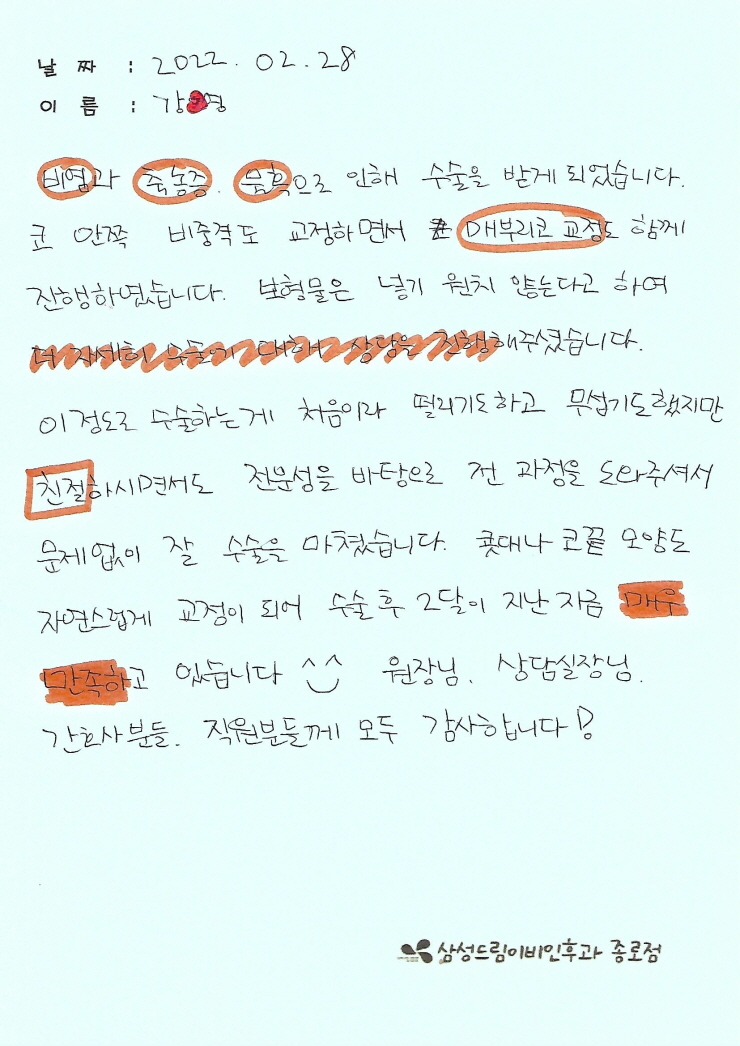 날 짜 : 2022. 02. 28
이 름 : 강 영
비염과 축농증. 물혹으로 인해 수술을 받게 되었습니다.
코 안쪽 비중격도 교정하면서 매부리코 교정도 함께
진행하였습니다. 보형물은 넣기 원치 않는다고 하여
더 자세히 수술에 대해서 상담을 진행해주셨습니다.
이정도로 수술하는게 처음이라 떨리기도하고 무섭기도했지만
친절하시면서도 전문성을 바탕으로 전 과정을 도와주셔서
문제없이 잘 수술을 마쳤습니다. 콧대나 코끝 모양도
자연스럽게 교정이 되어 수술 후 2달이 지난 지금 매우
만족하고 있습니다 ^^ 원장님. 상담실장님.
간호사분들. 직원분들께 모두 감사합니다!
삼성드림이비인후과 종로점